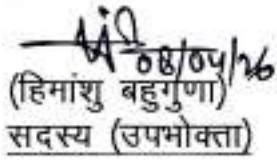 08/04/26
(हिमांशु बहुगुणा)
सदस्य (उपभोक्ता)